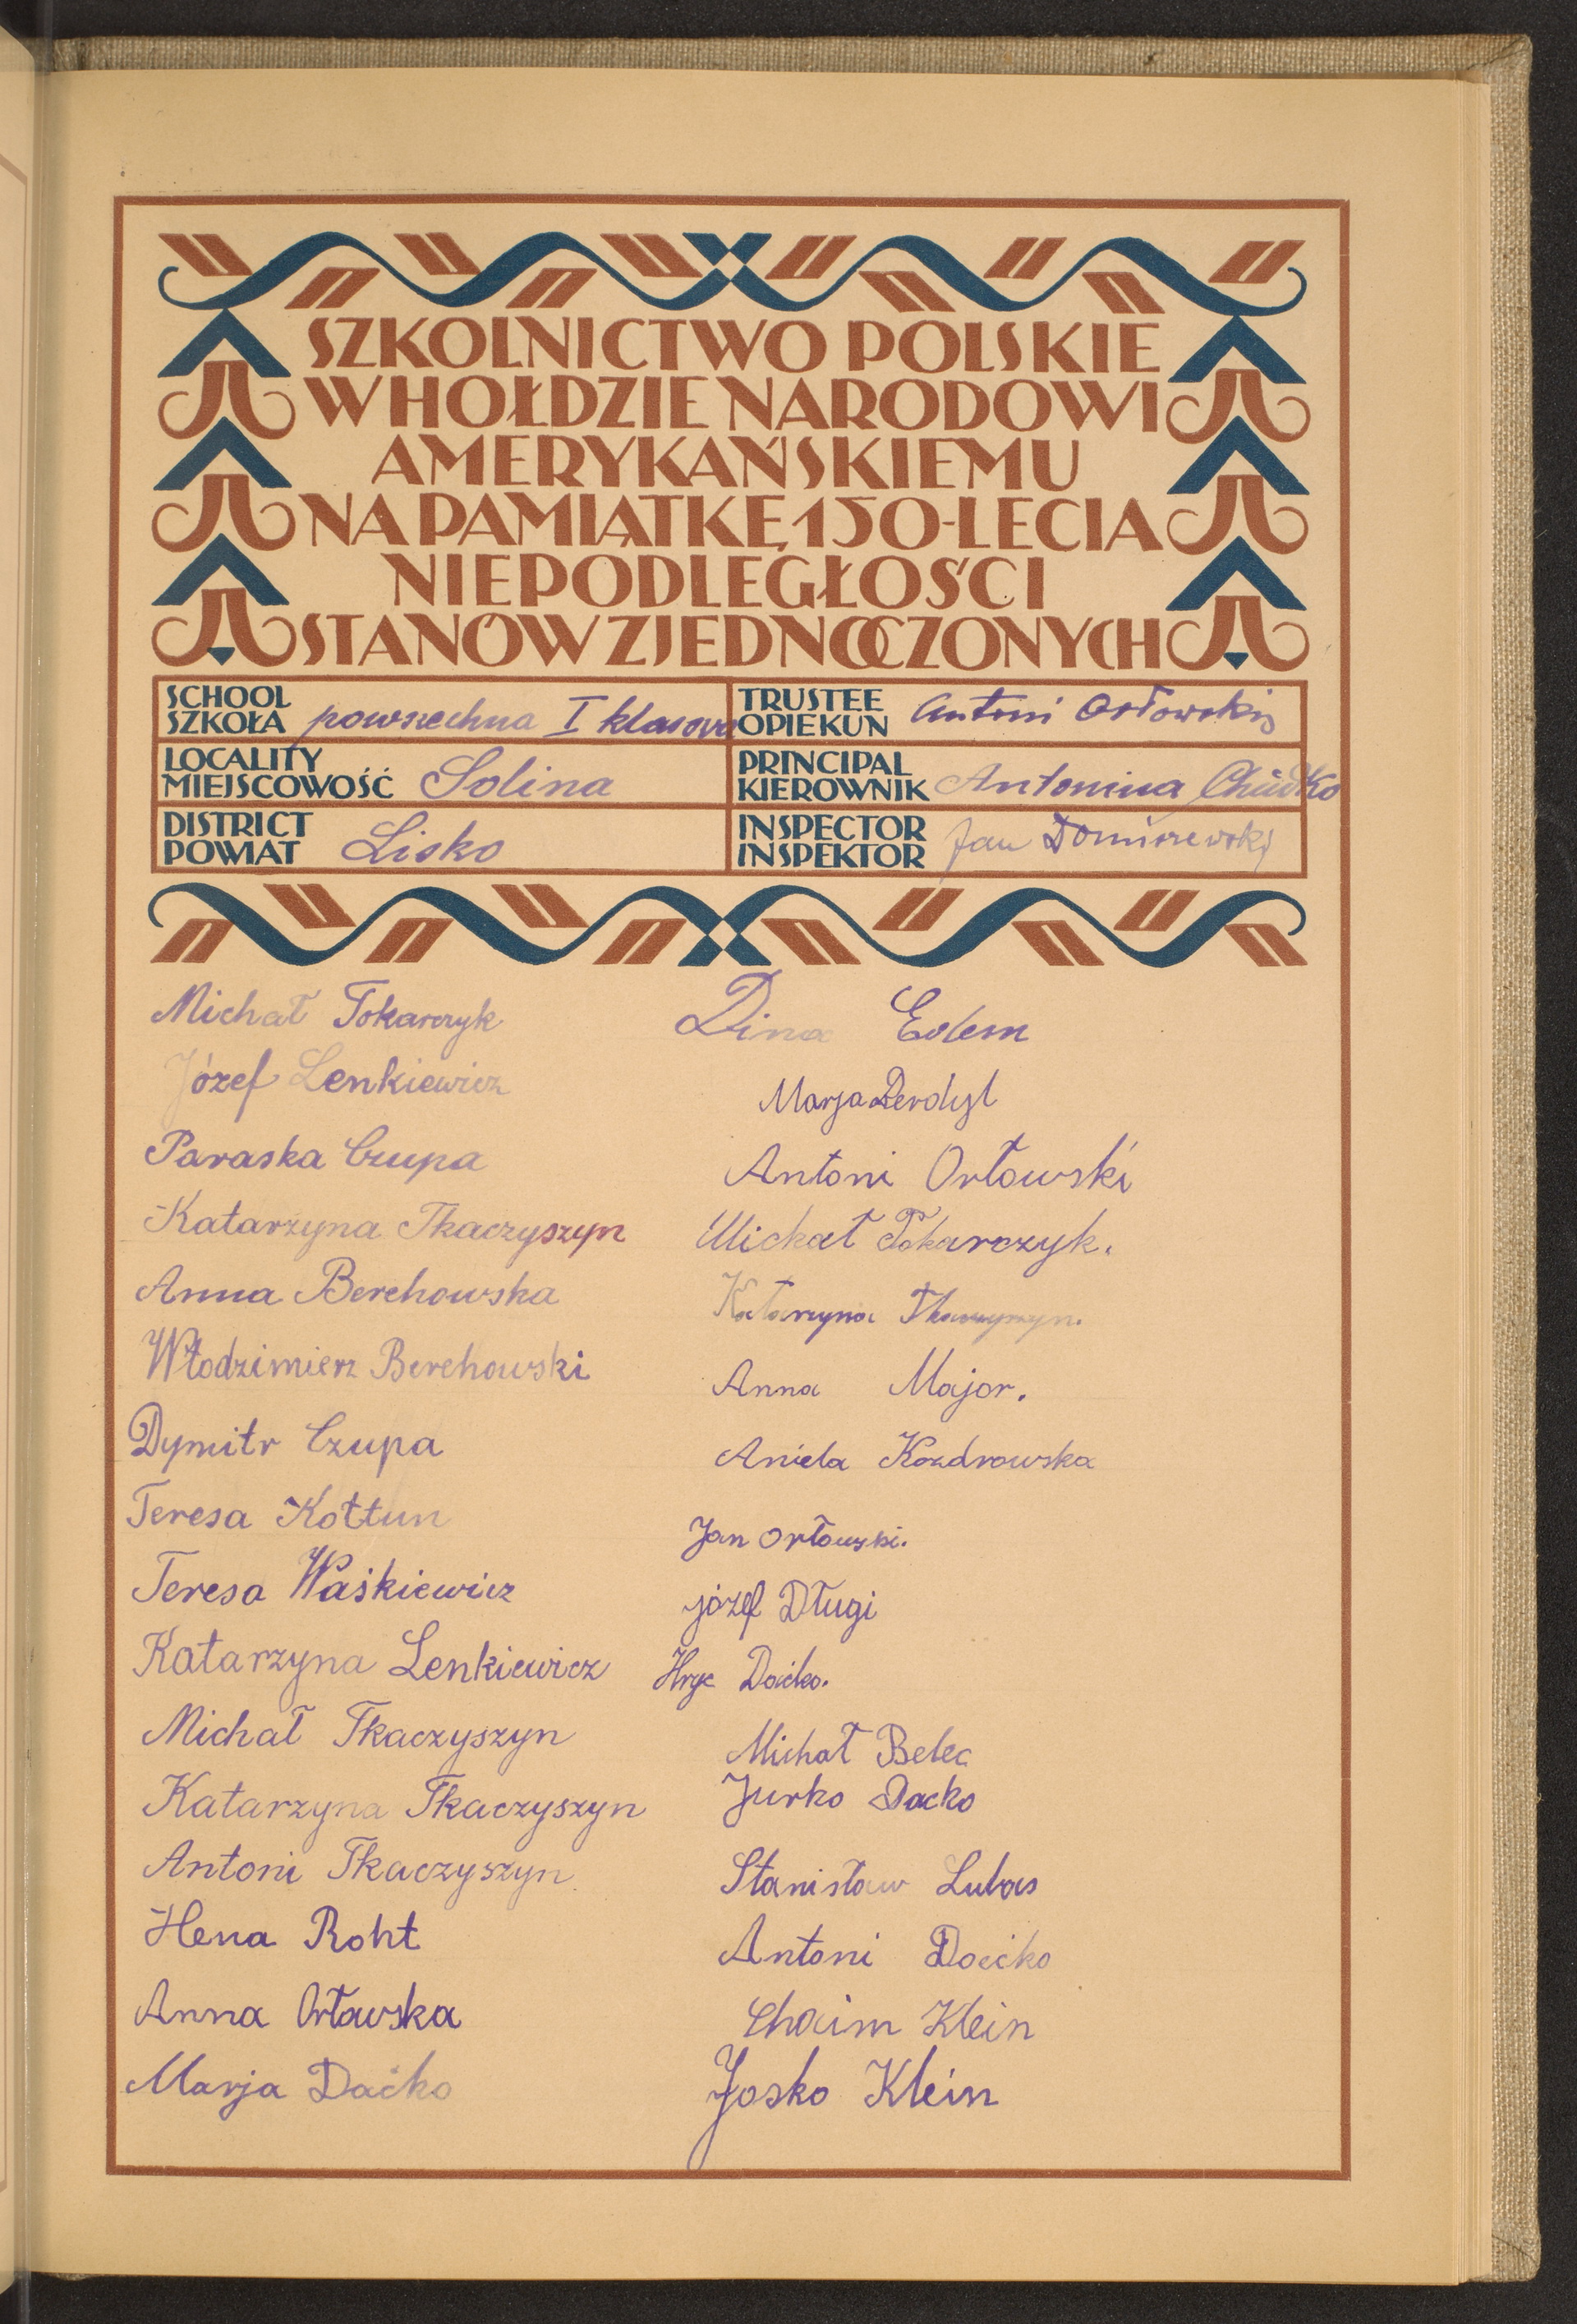 SZKOLNICTWO POLSKIE
W HOŁDZIE NARODOWI
AMERYKAŃSKIEMU
NA PAMIĄTKĘ 150-LECIA
NIEPODLEGŁOŚCI
STANÓW ZJEDNOCZONYCH
SCHOOL
SZKOŁA powszechna I klasowa
TRUSTEE
OPIEKUN Antoni Orłowski
LOCALITY
MIEJSCOWOŚĆ Solina
PRINCIPAL
KIEROWNIK Antonina
DISTRICT
POWIAT Lisko
INSPECTOR
INSPEKTOR Jan
Michał Tokarczyk
Józef Lenkiewicz
Paraska Czupa
Katarzyna Tkaczyszyn
Anna Berehowska
Włodzimierz Berehowski
Dymitr Czupa
Teresa Kottun
Teresa Waśkiewicz
Katarzyna Lenkiewicz
Michał Tkaczyszyn
Katarzyna Tkaczyszyn
Antoni Tkaczyszyn
Hena Roht
Anna Orławska
Marja Daćko
Dina Edem
Marja Derdyl
Antoni Orłowski
Michał Tokarczyk.
Katarzyna Tkaczyszyn.
Anna Major.
Aniela Kozdrowska
Jan Orłowski.
józef Długi
Hryc Daćko.
Michał Belec
Jurko Dacko
Stanisław Lubas
Antoni Daćko
Chaim Klein
Josko Klein